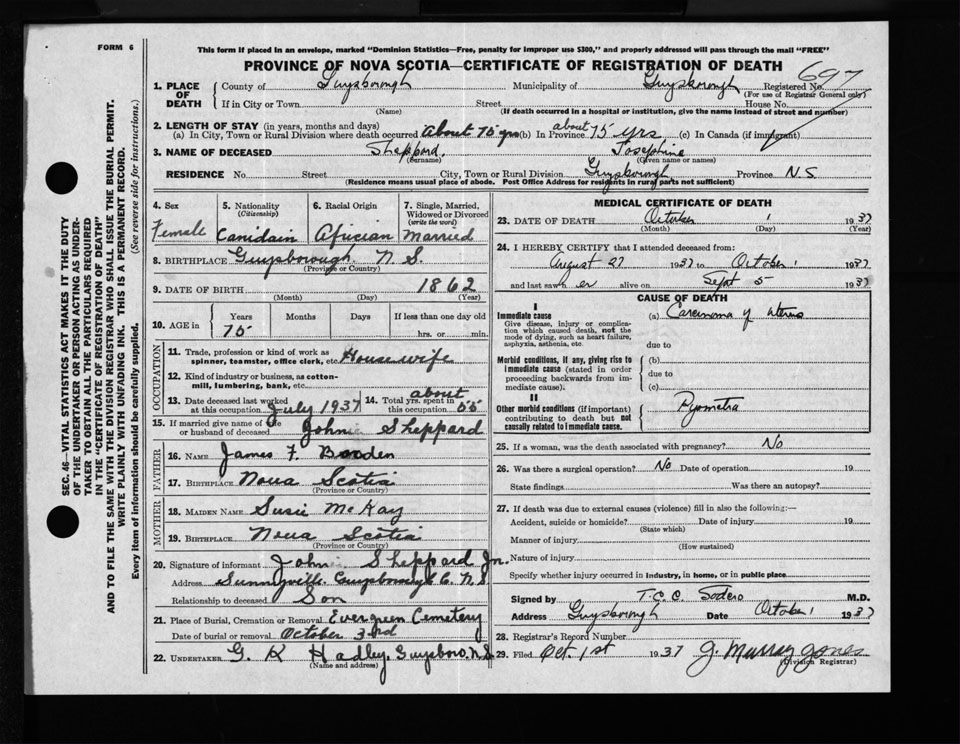 FORM 6
This form if placed in an envelope, marked "Dominion Statistics—Free, penalty for improper use $300," and properly addressed will pass through the mail "FREE"
PROVINCE OF NOVA SCOTIA—CERTIFICATE OF REGISTRATION OF DEATH
697
1. PLACE OF DEATH County of Guysborough Municipality of Guysborough Registered No.
(For use of Registrar General only)
If in City or Town Street House No.
(Name) (If death occurred in a hospital or institution, give the name instead of street and number)
2. LENGTH OF STAY (in years, months and days)
(a) In City, Town or Rural Division where death occurred About 75 yrs (b) In Province about 75 yrs (c) In Canada (if immigrant)
3. NAME OF DECEASED Sheppard, Josephine
(Surname) (Given name or names)
RESIDENCE No. Street City, Town or Rural Division Guysborough Province N.S.
(Residence means usual place of abode. Post Office Address for residents in rural parts not sufficient)
4. Sex
Female
5. Nationality
(Citizenship)
Canidain
6. Racial Origin
African
7. Single, Married, Widowed or Divorced
(write the word)
Married
8. BIRTHPLACE Guysborough N.S.
(Province or Country)
9. DATE OF BIRTH 1862
(Month) (Day) (Year)
10. AGE in Years Months Days If less than one day old
75 hrs. or min.
OCCUPATION
11. Trade, profession or kind of work as spinner, teamster, office clerk, etc. House wife
12. Kind of industry or business, as cotton-mill, lumbering, bank, etc.
13. Date deceased last worked at this occupation July 1937
14. Total yrs. spent in this occupation about 55
15. If married give name of wife or husband of deceased John Sheppard
FATHER
16. NAME James F.
17. BIRTHPLACE Nova Scotia
(Province or Country)
MOTHER
18. MAIDEN NAME Susie McKay
19. BIRTHPLACE Nova Scotia
(Province or Country)
20. Signature of informant John Sheppard Jr.
Address Sunnyville Guysborough C. N.S.
Relationship to deceased Son
21. Place of Burial, Cremation or Removal Evergreen Cemetery
Date of burial or removal October 3rd
22. UNDERTAKER G. K Hadley, Guysboro, N.S.
(Name and address)
MEDICAL CERTIFICATE OF DEATH
23. DATE OF DEATH October 1 1937
(Month) (Day) (Year)
24. I HEREBY CERTIFY that I attended deceased from:
August 27 1937 to October 1 1937
and last saw h er alive on Sept 5 1937
CAUSE OF DEATH
I
Immediate cause
Give disease, injury or complication which caused death, not the mode of dying, such as heart failure, asphyxia, asthenia, etc.
(a) Carcinoma of uterus
due to
Morbid conditions, if any, giving rise to immediate cause (stated in order proceeding backwards from immediate cause).
(b)
due to
(c)
II
Other morbid conditions (if important) contributing to death but not causally related to immediate cause.
Pyometra
25. If a woman, was the death associated with pregnancy? No
26. Was there a surgical operation? No Date of operation 19
State findings Was there an autopsy?
27. If death was due to external causes (violence) fill in also the following:—
Accident, suicide or homicide? Date of injury 19
(State which)
Manner of injury
(How sustained)
Nature of injury
Specify whether injury occurred in industry, in home, or in public place
Signed by T.C.C. Sodero M.D.
Address Guysborough Date October 1 1937
28. Registrar's Record Number
29. Filed Oct. 1st 1937 J. Murray Jones
(Division Registrar)
SEC. 46—VITAL STATISTICS ACT MAKES IT THE DUTY
OF THE UNDERTAKER OR PERSON ACTING AS UNDER-
TAKER TO OBTAIN ALL THE PARTICULARS REQUIRED
IN THE "CERTIFICATE OF REGISTRATION OF DEATH"
AND TO FILE THE SAME WITH THE DIVISION REGISTRAR WHO SHALL ISSUE THE BURIAL PERMIT.
WRITE PLAINLY WITH UNFADING INK. THIS IS A PERMANENT RECORD.
Every item of information should be carefully supplied. (See reverse side for instructions.)